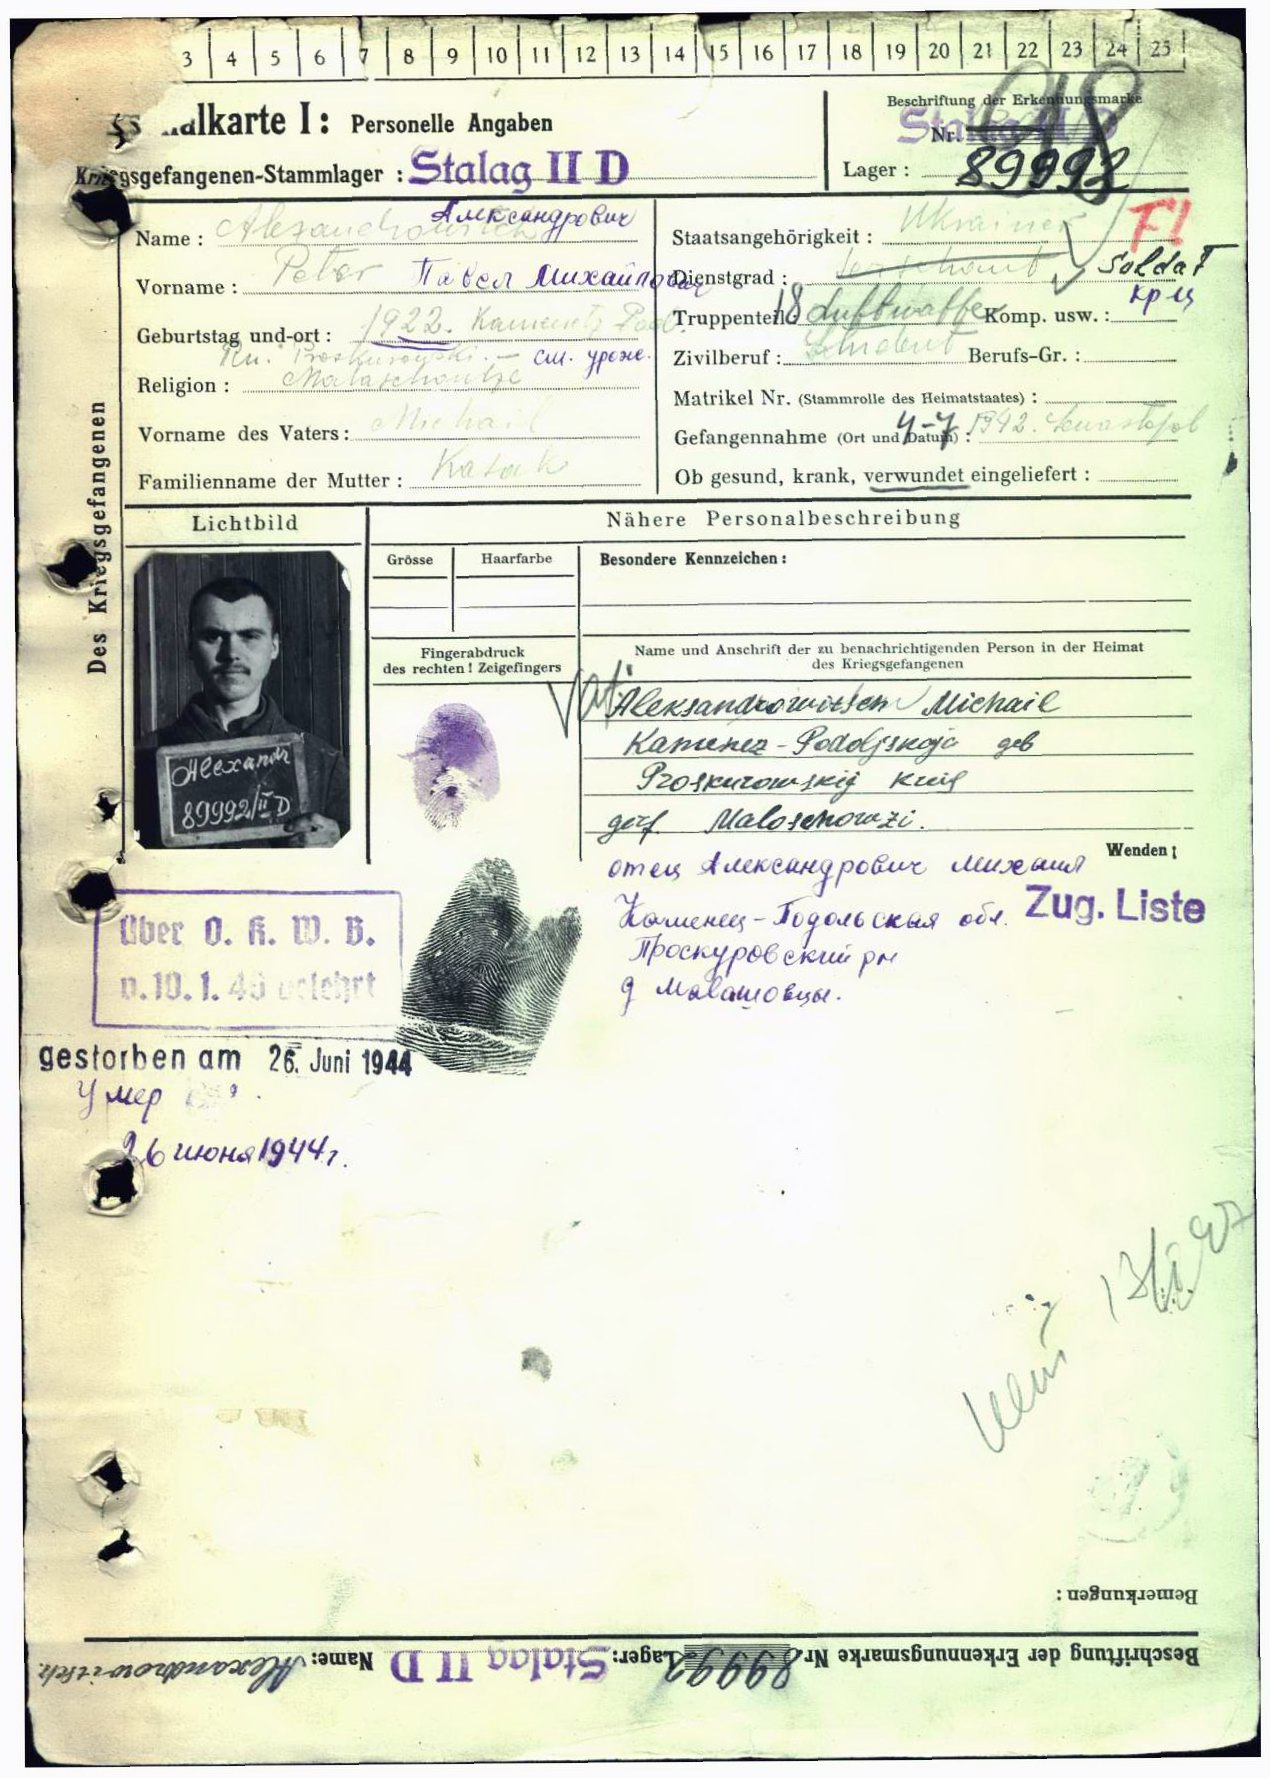 3 4 5 6 7 8 9 10 11 12 13 14 15 16 17 18 19 20 21 22 23 24 25
alkarte I: Personelle Angaben
Beschriftung der Erkennungsmarke
Stalag II D
Nr.
Kriegsgefangenen-Stammlager : Stalag II D
Lager : 89992
Des Kriegsgefangenen
Александрович
Name : Alexandrowitsch
Vorname : Peter Павел Михайлович
Geburtstag und-ort : 1922. Kamenetz Pod.
см. уроже.
Religion :
Vorname des Vaters : Michail
Familienname der Mutter : Kasak
Staatsangehörigkeit : Ukrainer F!
Dienstgrad : Soldat
кр-ц
Truppenteil : 18 Luftwaffe Komp. usw. :
Zivilberuf : Student Berufs-Gr. :
Matrikel Nr. (Stammrolle des Heimatstaates) :
Gefangennahme (Ort und Datum) : 4-7 1942. Sewastopol
Ob gesund, krank, verwundet eingeliefert :
Lichtbild
Nähere Personalbeschreibung
Grösse Haarfarbe Besondere Kennzeichen :
Fingerabdruck
des rechten ! Zeigefingers
Name und Anschrift der zu benachrichtigenden Person in der Heimat
des Kriegsgefangenen
Alexandr
89992/II D
Aleksandrowitsch Michail
Kamenez-Podoljskaja geb
Proskurowskij kreis
Maloschowzi.
Wenden !
отец Александрович Михаил
Каменец-Подольская обл.
Проскуровский рн
д Малашовцы.
Zug. Liste
Über O. K. W. B.
gestorben am 26. Juni 1944
Умер
26 июня 1944 г.
Bemerkungen :
Beschriftung der Erkennungsmarke Nr 89992 Lager: Stalag II D Name: Alexandrowitsch